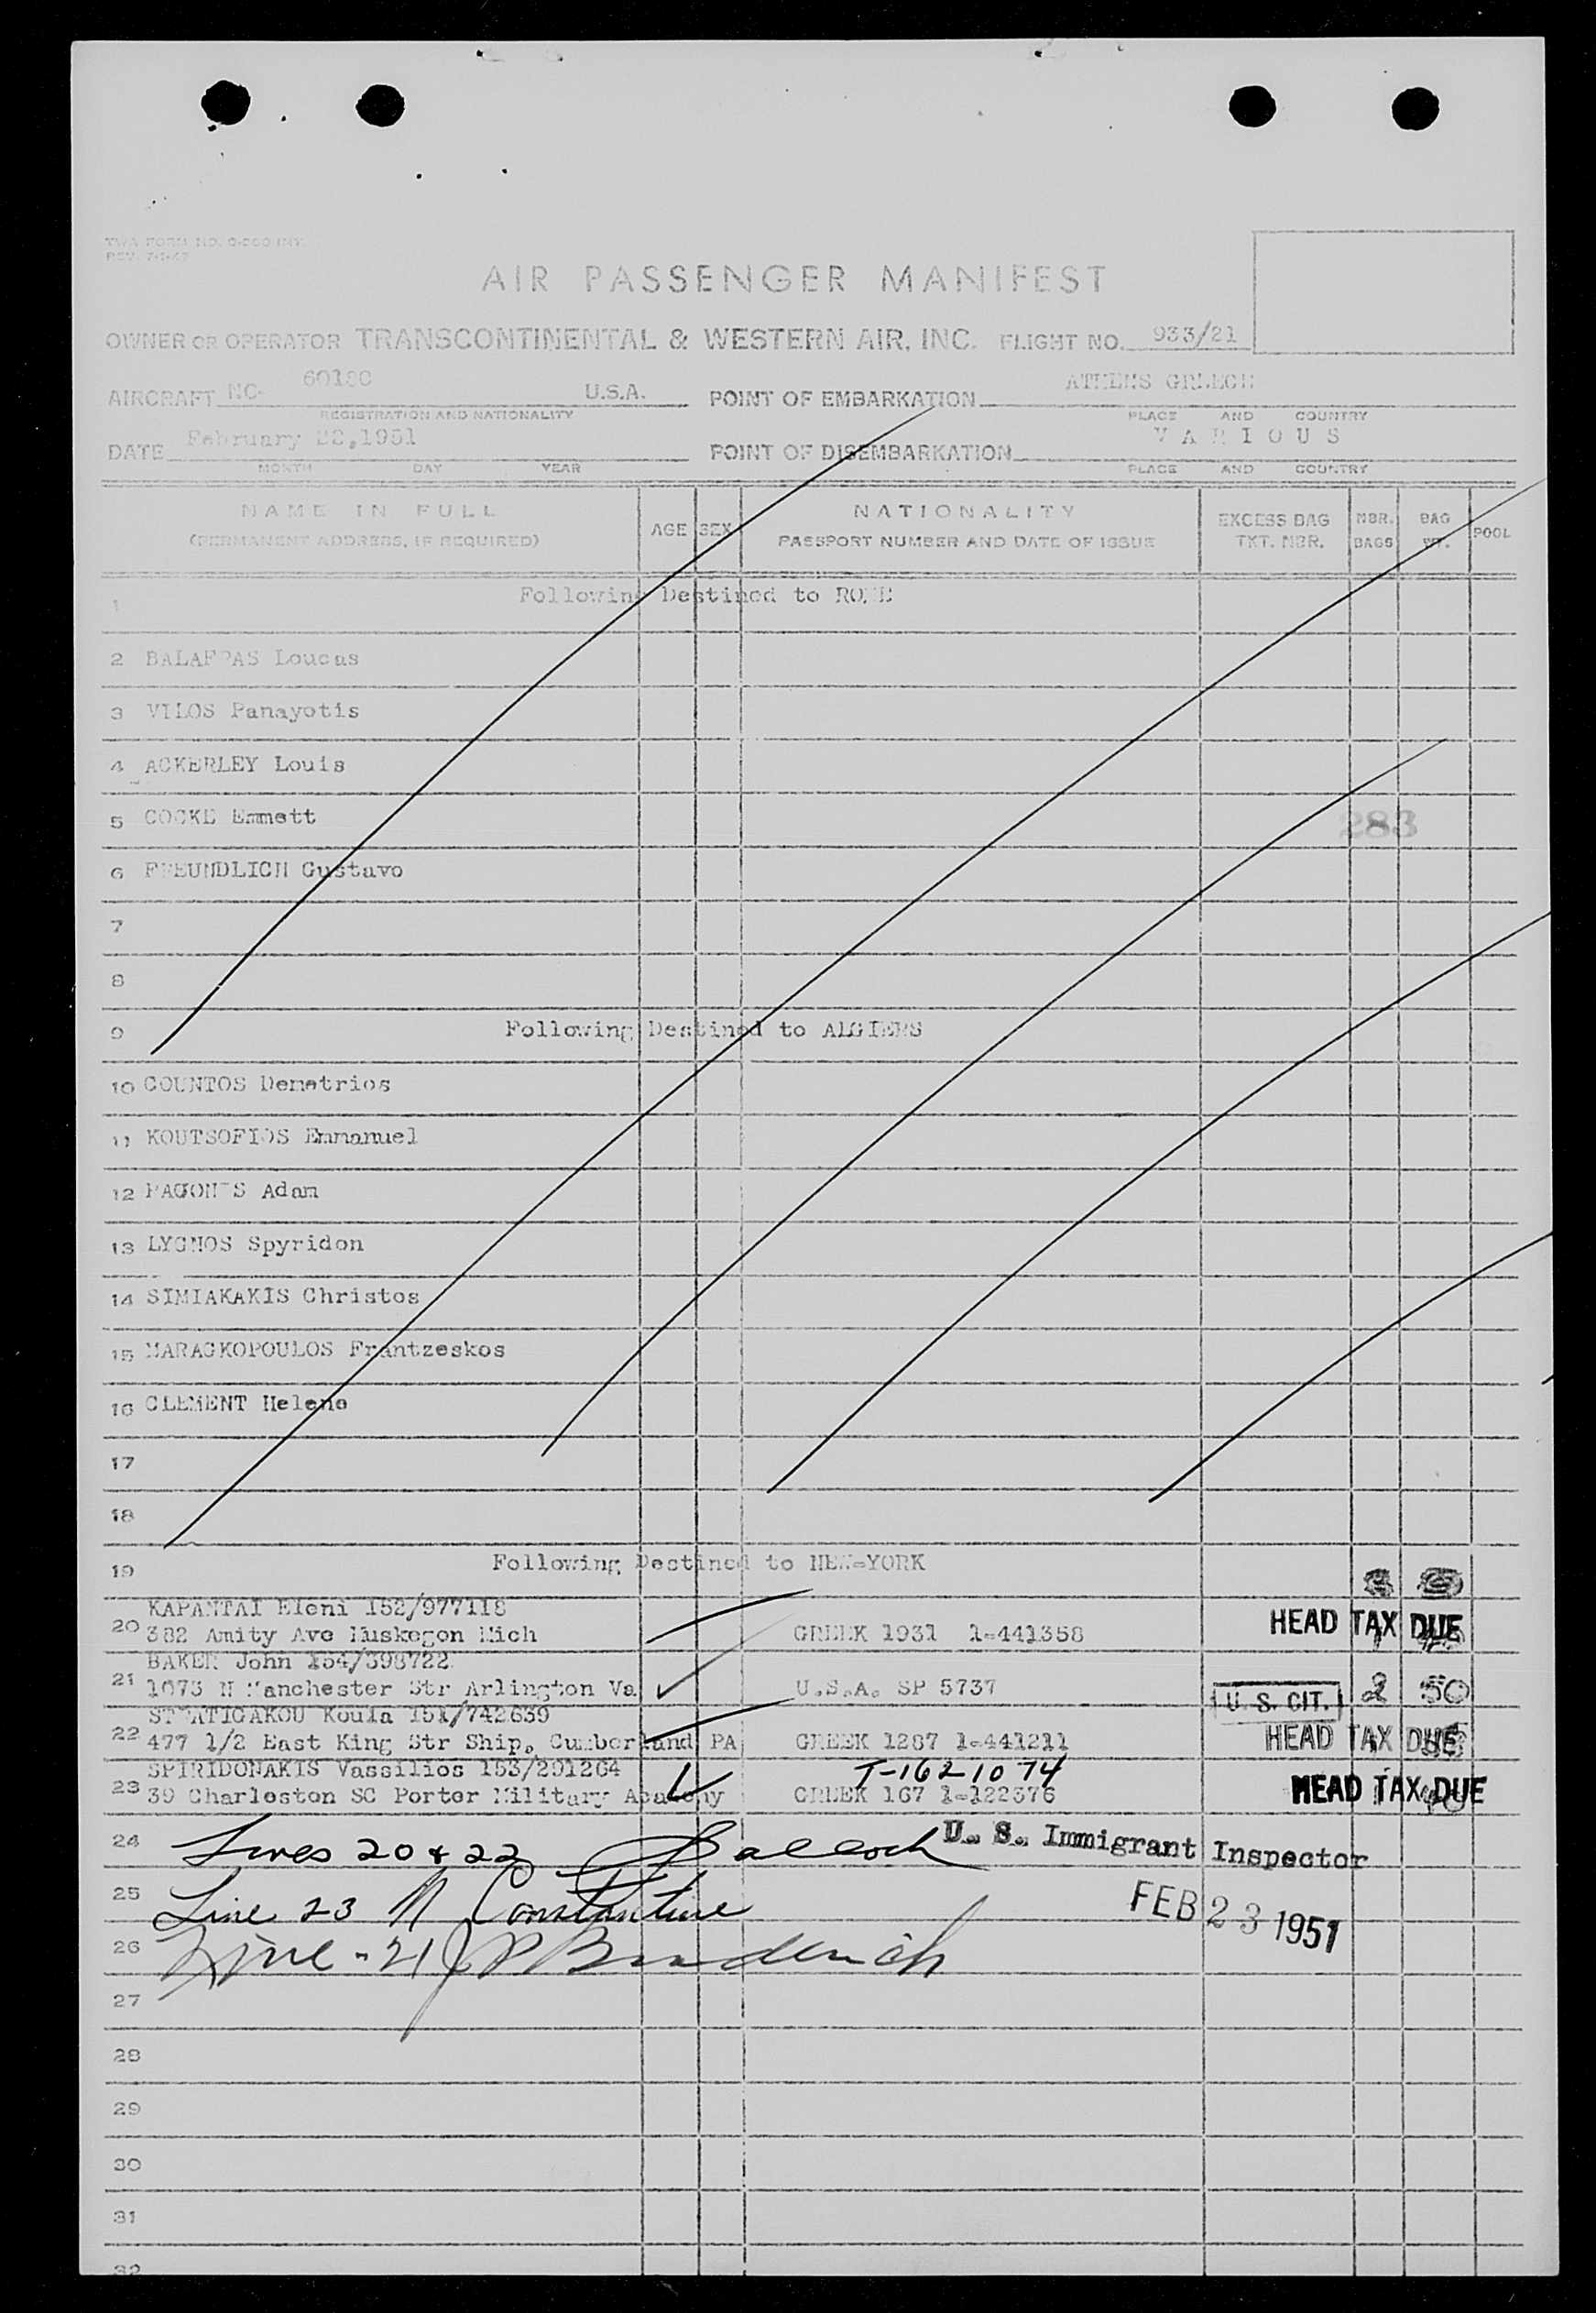 AIR PASSENGER MANIFEST
OWNER OR OPERATOR TRANSCONTINENTAL & WESTERN AIR, INC. FLIGHT NO. 933/21
AIRCRAFT NC- U.S.A. POINT OF EMBARKATION ATHENS GREECE
REGISTRATION AND NATIONALITY PLACE AND COUNTRY
DATE February 22,1951 POINT OF DISEMBARKATION VARIOUS
MONTH DAY YEAR PLACE AND COUNTRY
NAME IN FULL AGE SEX NATIONALITY EXCESS BAG NBR. BAG POOL
(PERMANENT ADDRESS, IF REQUIRED) PASSPORT NUMBER AND DATE OF ISSUE TKT. NBR. BAGS WT.
1 Following Destined to ROME
2 BALAFPAS Loucas
3 VILOS Panayotis
4 ACKERLEY Louis
5 COCKE Emmett 283
6 FREUNDLICH Gustavo
7
8
9 Following Destined to ALGIERS
10 COUNTOS Demetrios
11 KOUTSOFIOS Emmanuel
12 Adam
13 LYGNOS Spyridon
14 SIMIAKAKIS Christos
15 MARAGKOPOULOS Frantzeskos
16 CLEMENT Helene
17
18
19 Following Destined to NEW-YORK
KAPANTAI Eleni 152/977118
20 382 Amity Ave Muskegon Mich GREEK 1931 1-441358 HEAD TAX DUE
BAKER John 154/398722
21 1073 N Manchester Str Arlington Va U.S.A. SP 5737 U. S. CIT. 2 50
STRATIGAKOU Koula 151/742639
22 477 1/2 East King Str Ship. Cumberland PA GREEK 1287 1-441211 HEAD TAX DUE
SPIRIDONAKIS Vassilios 153/291264 T-1621074
23 39 Charleston SC Porter Military Academy GREEK 167 1-122376 HEAD TAX DUE
24 Lines 20 & 22 U. S. Immigrant Inspector
25 Line 23 N Constantine FEB 23 1951
26 Line - 21
27
28
29
30
31
32